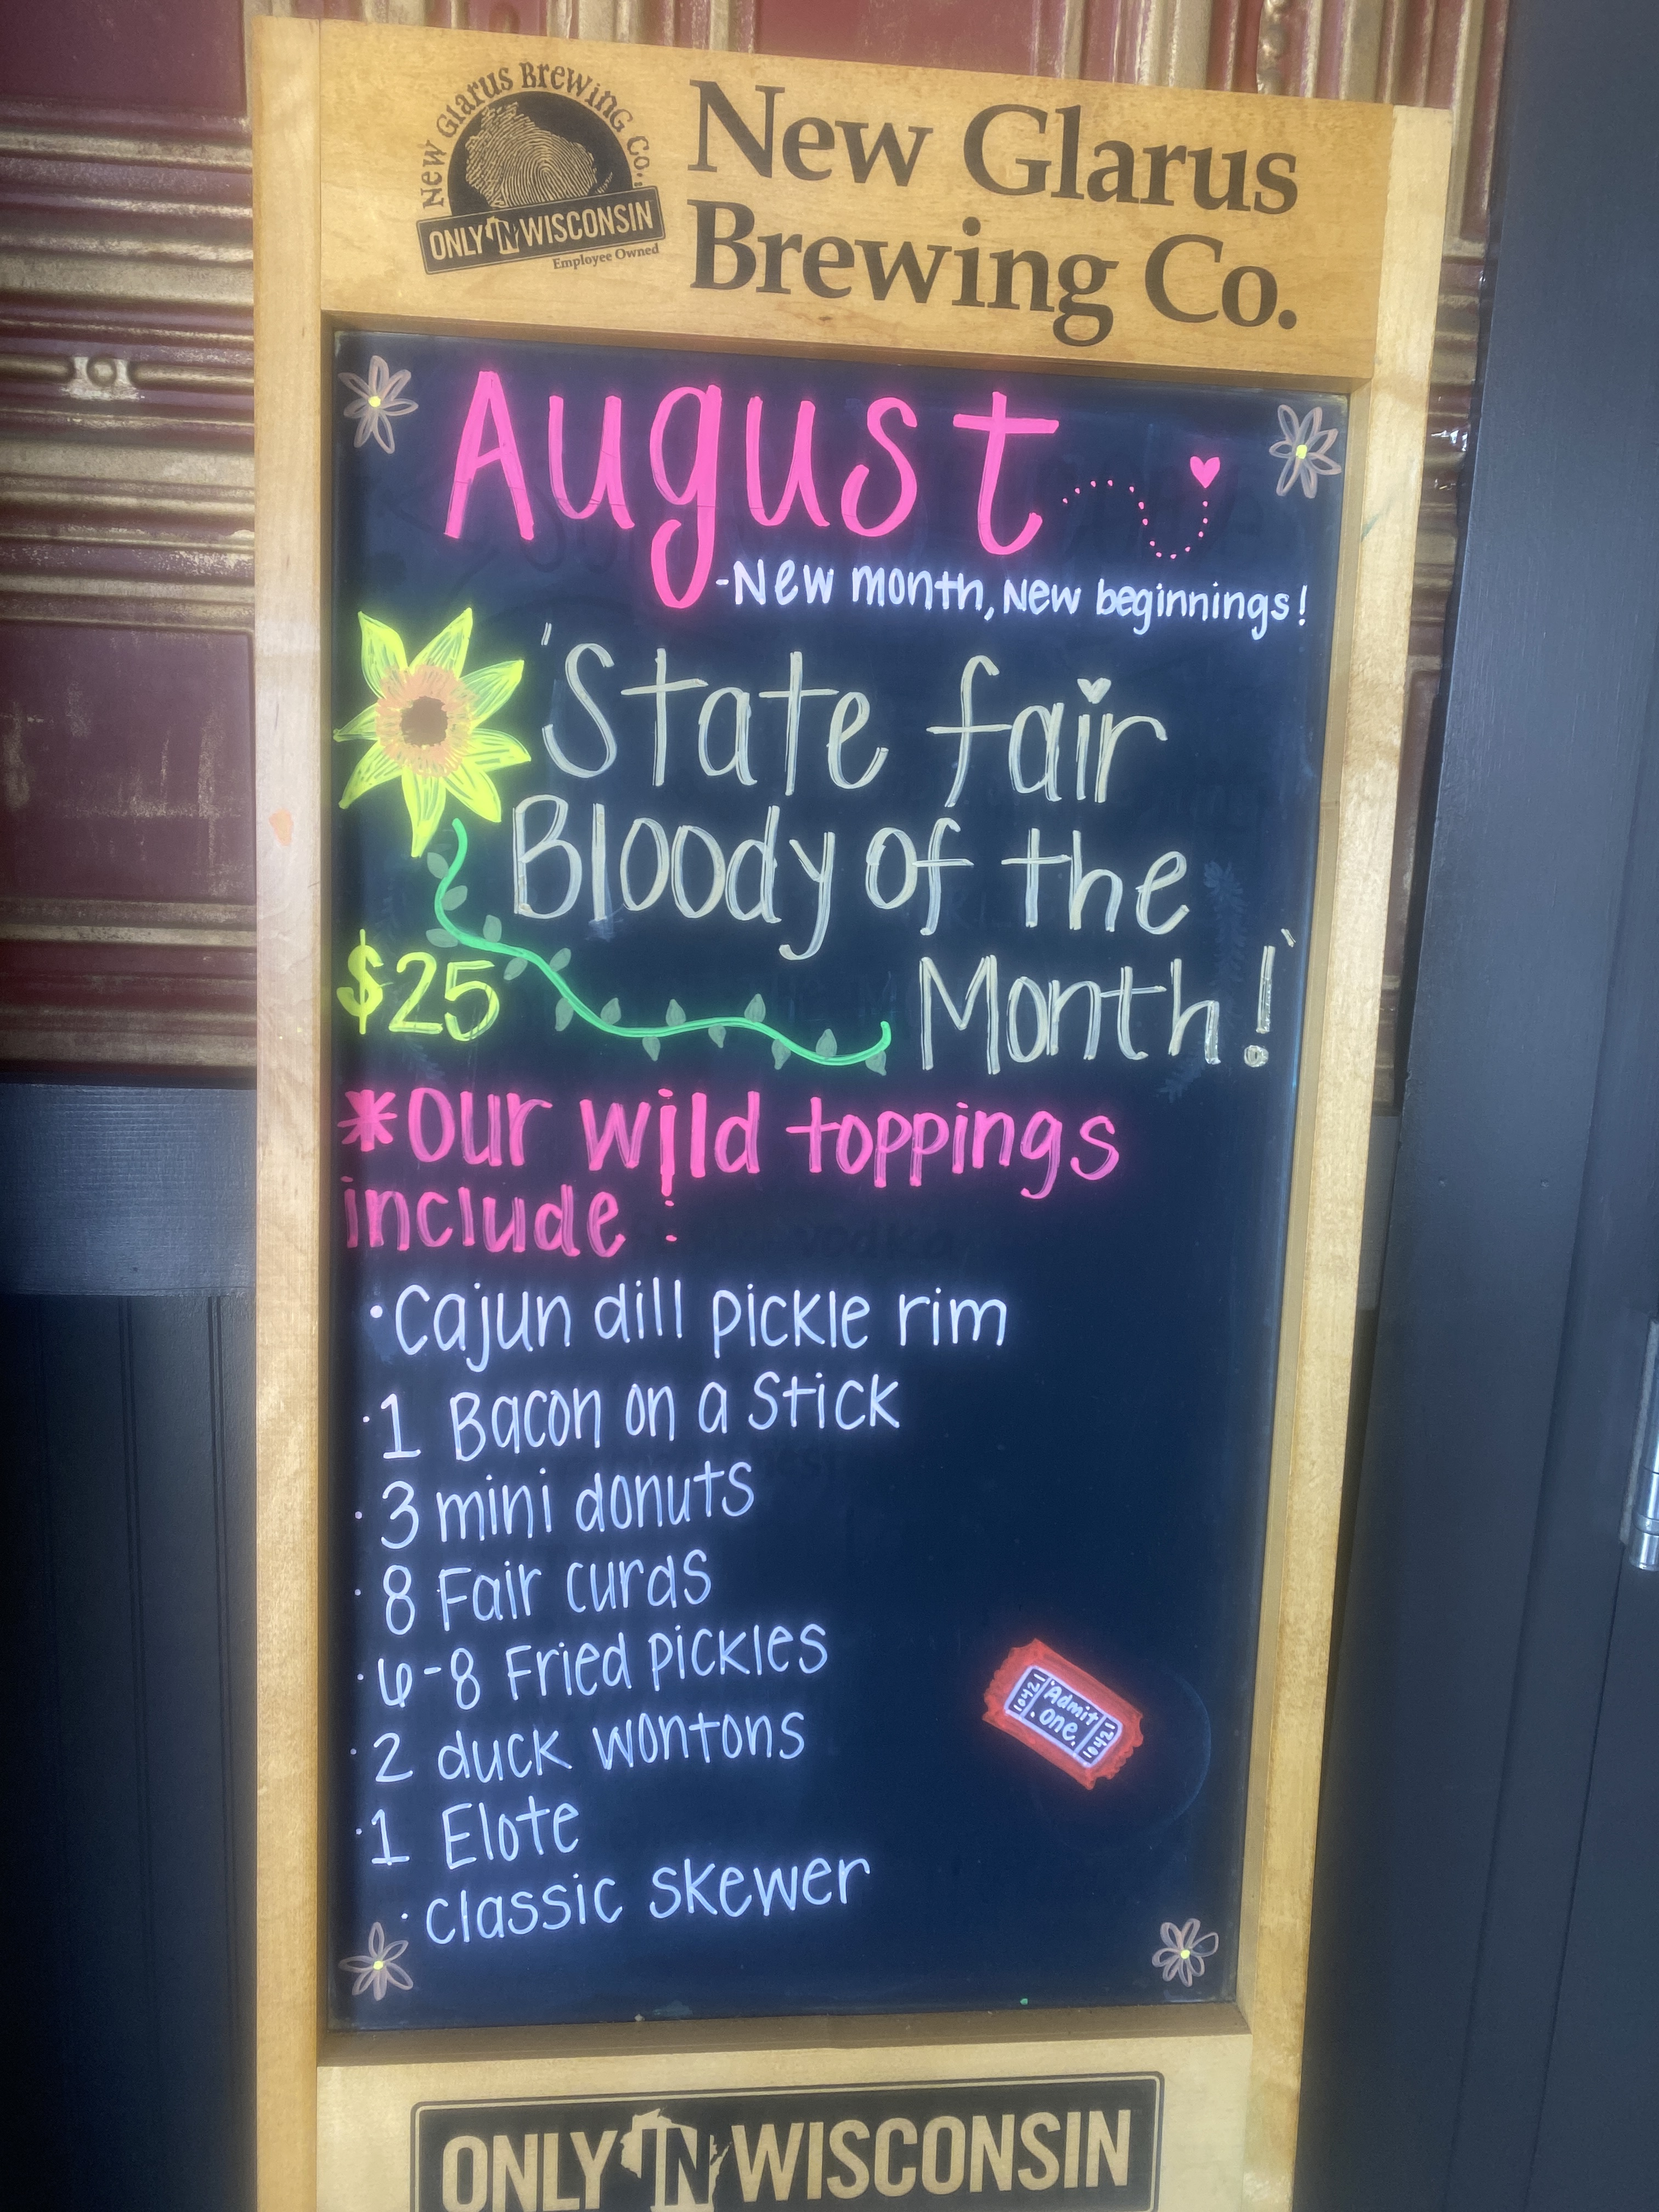 New Glarus Brewing Co.
ONLY IN WISCONSIN
Employee Owned
New Glarus
Brewing Co.
August
-New month, New beginnings!
'State fair
Bloody of the
$25 Month!'
*Our wild toppings
include :
·Cajun dill pickle rim
·1 Bacon on a Stick
·3 mini donuts
·8 Fair curds
·6-8 Fried pickles
·2 duck wontons
·1 Elote
·classic skewer
1042
'Admit
one.
1042
ONLY IN WISCONSIN